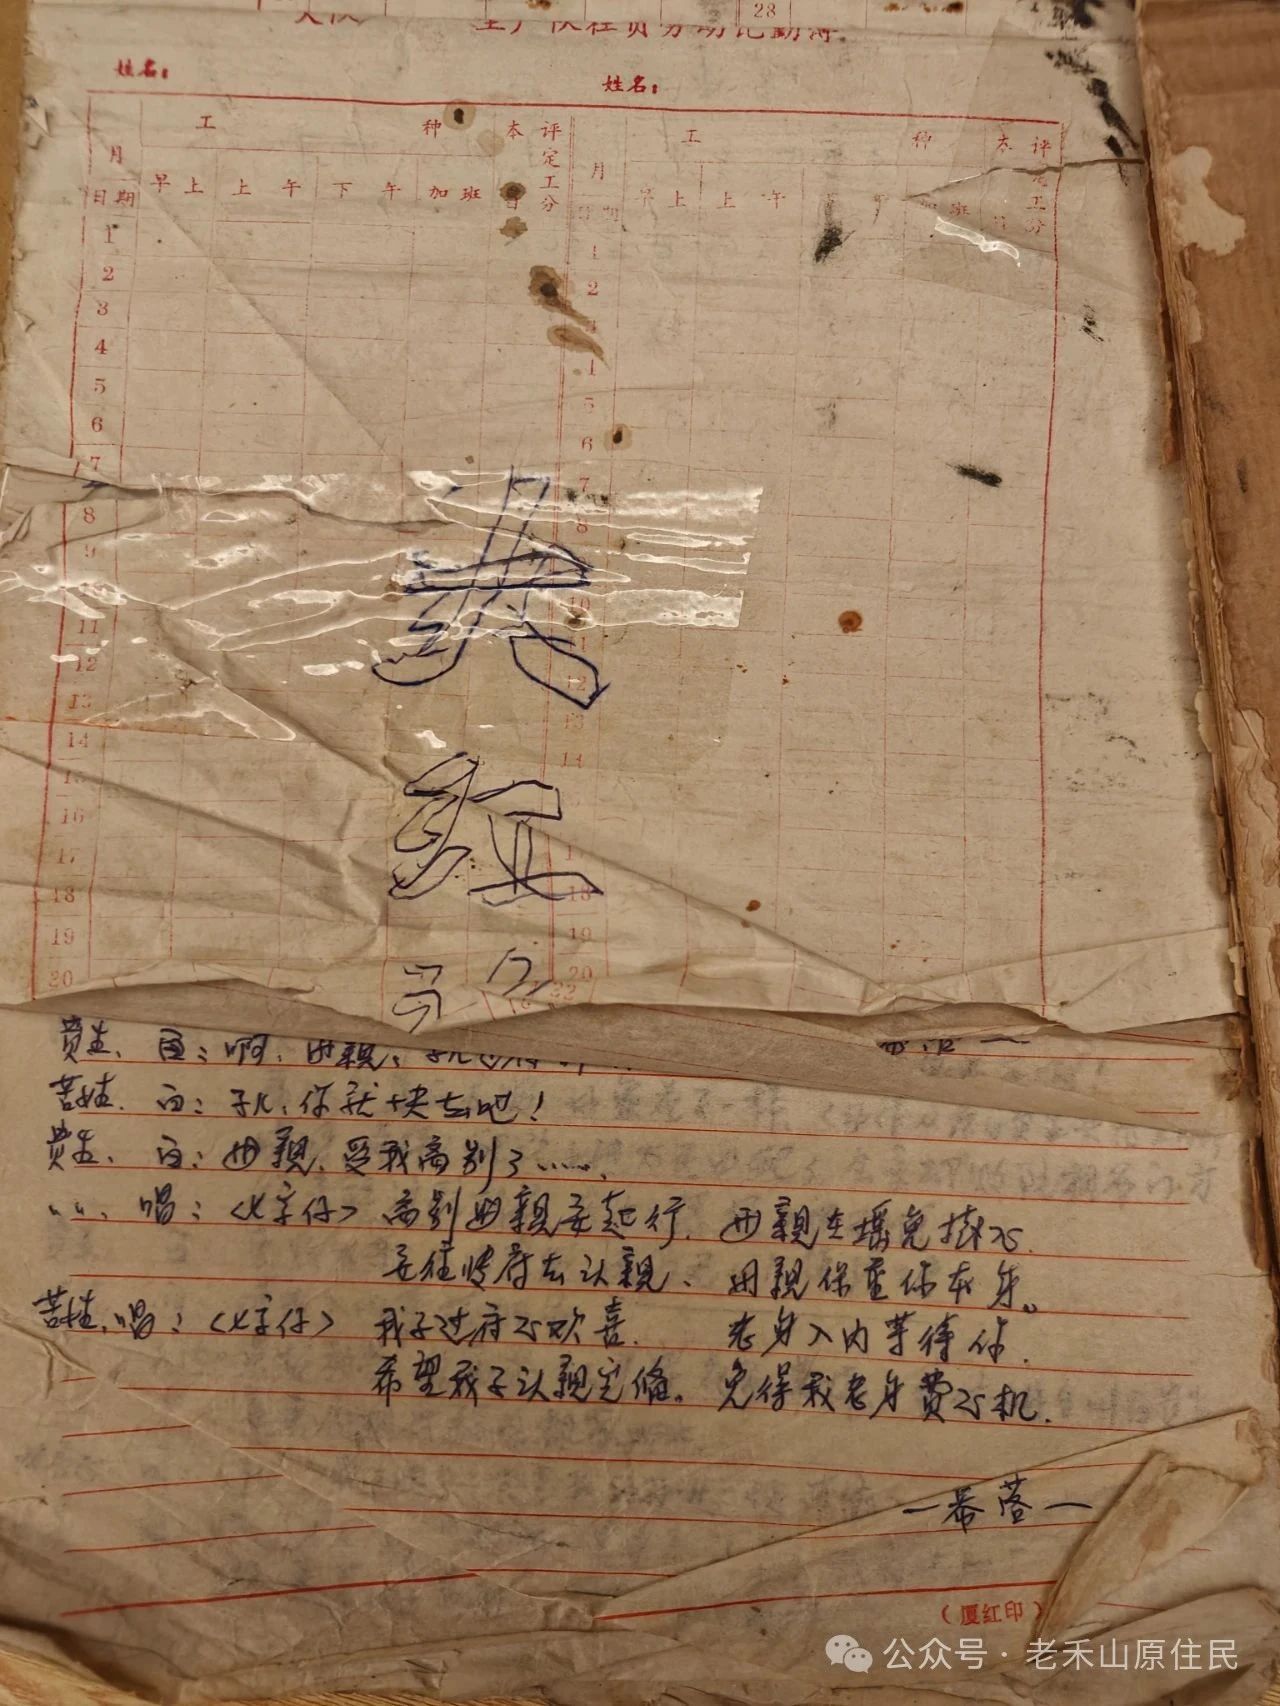 28
大队 生产队社员劳动记勤簿
姓名： 姓名：
工 种 本 评定工分 工 种 本 评定工分
月 月
日期 早上 上午 下午 加班 日 日期 早上 上午 下午 加班 日
1 1
2 2
3 3
4 4
5 5
6 6
7 7
8 8
9
10
11
12 12
13 13
14 14
15
16
17 17
18 18
19 19
20 20
红
贵生、白：啊、母親、
苦旦、白：子儿、你就十快去吧！
贵生、白：母親、受我离别了……
〃〃、唱：〈七字仔〉离别母親要起行．母親在瑶免掛心．
要往 府去认親、母親保重你本身。
苦旦、唱：〈七字仔〉我子过府心欢喜．老身入内等待你．
希望我子认親完俻。免得我老身費心机．
一幕落一
（厦红印）
公众号·老禾山原住民